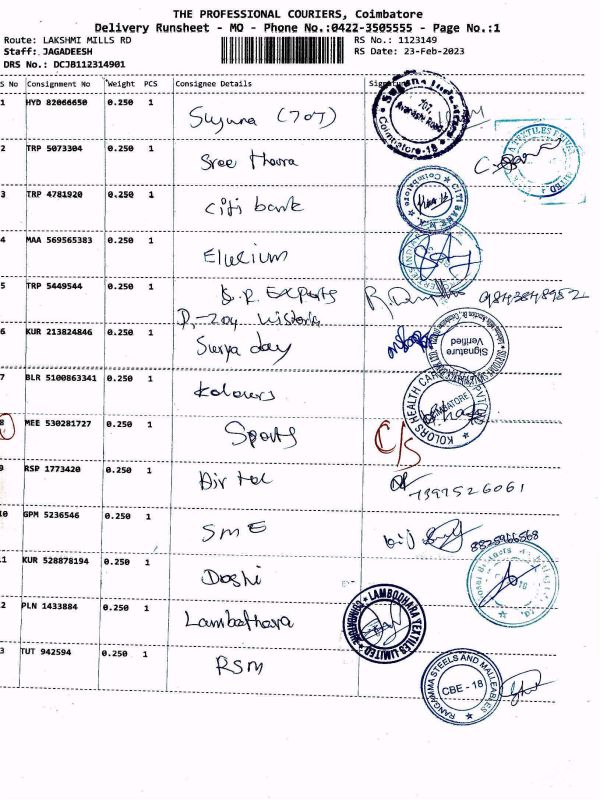 THE PROFESSIONAL COURIERS, Coimbatore
Delivery Runsheet - MO - Phone No.:0422-3505555 - Page No.:1
Route: LAKSHMI MILLS RD RS No.: 1123149
Staff: JAGADEESH RS Date: 23-Feb-2023
DRS No.: DCJB112314901
S No Consignment No Weight PCS Consignee Details
1 HYD 82066650 0.250 1 Sujuna (707) 707, Avanashi Road Coimbatore-18
2 TRP 5073304 0.250 1 Sree thara
3 TRP 4781920 0.250 1 Citi bank CITI BANK N.A. Coimbatore
4 MAA 569565383 0.250 1 Elucium
5 TRP 5449544 0.250 1 S.R. Exports
6 KUR 213824846 0.250 1 Surya day Signature Verified
7 BLR 5100863341 0.250 1 Kolours KOLORS HEALTH CARE COIMBATORE
8 MEE 530281727 0.250 1 Sports C/S
9 RSP 1773420 0.250 1 Air tel 7397526061
10 GPM 5236546 0.250 1 SME 8825966568
11 KUR 528878194 0.250 1 Doshi
2 PLN 1433884 0.250 1 Lambathara LAMBODHARA TEXTILES LIMITED
3 TUT 942594 0.250 1 RSM RANGAMMA STEELS AND MALLEABLES CBE - 18